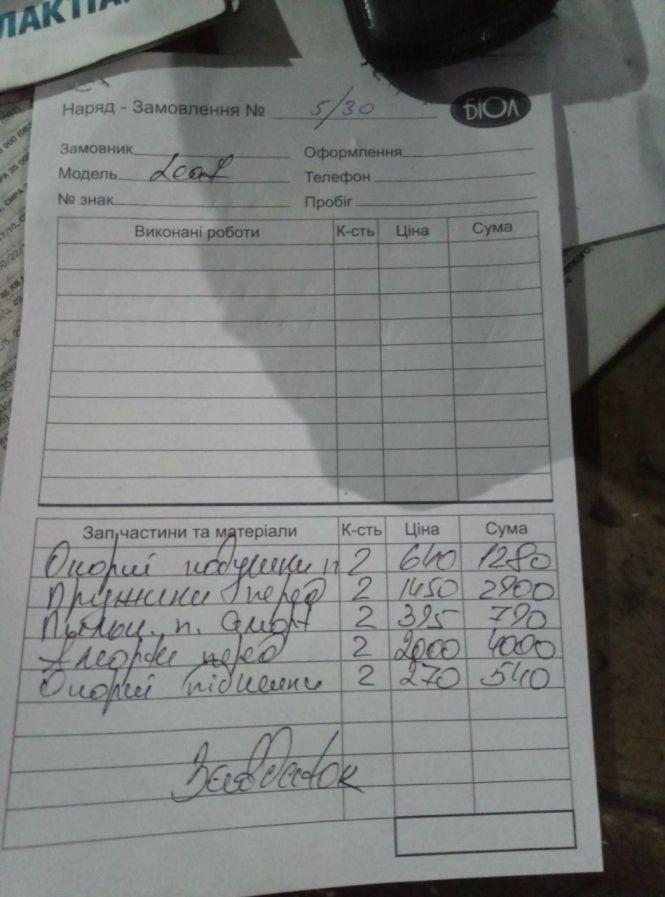 ЛАКТИ
Наряд - Замовлення № 5/30 БІОЛ
Замовник Оформлення
Модель Leaf Телефон
№ знак Пробіг
Виконані роботи К-сть Ціна Сума
Зап.частини та матеріали К-сть Ціна Сума
Опорні подушки п 2 640 1280
Пружини перед 2 1450 2900
Пыльн. п. Аморт 2 395 790
Аморти перед 2 2000 4000
Опорні підшепники 2 270 540
Завдаток